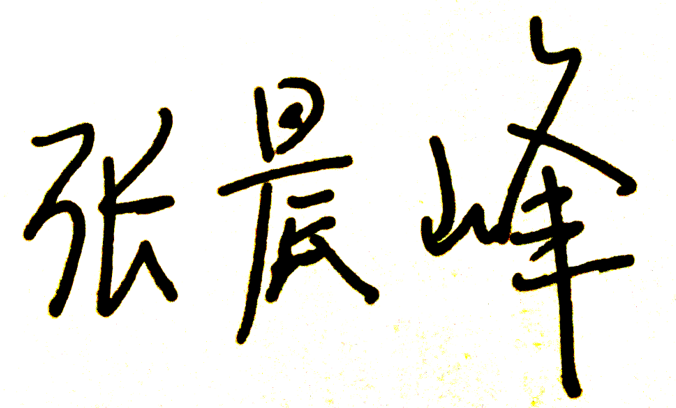 张晨峰